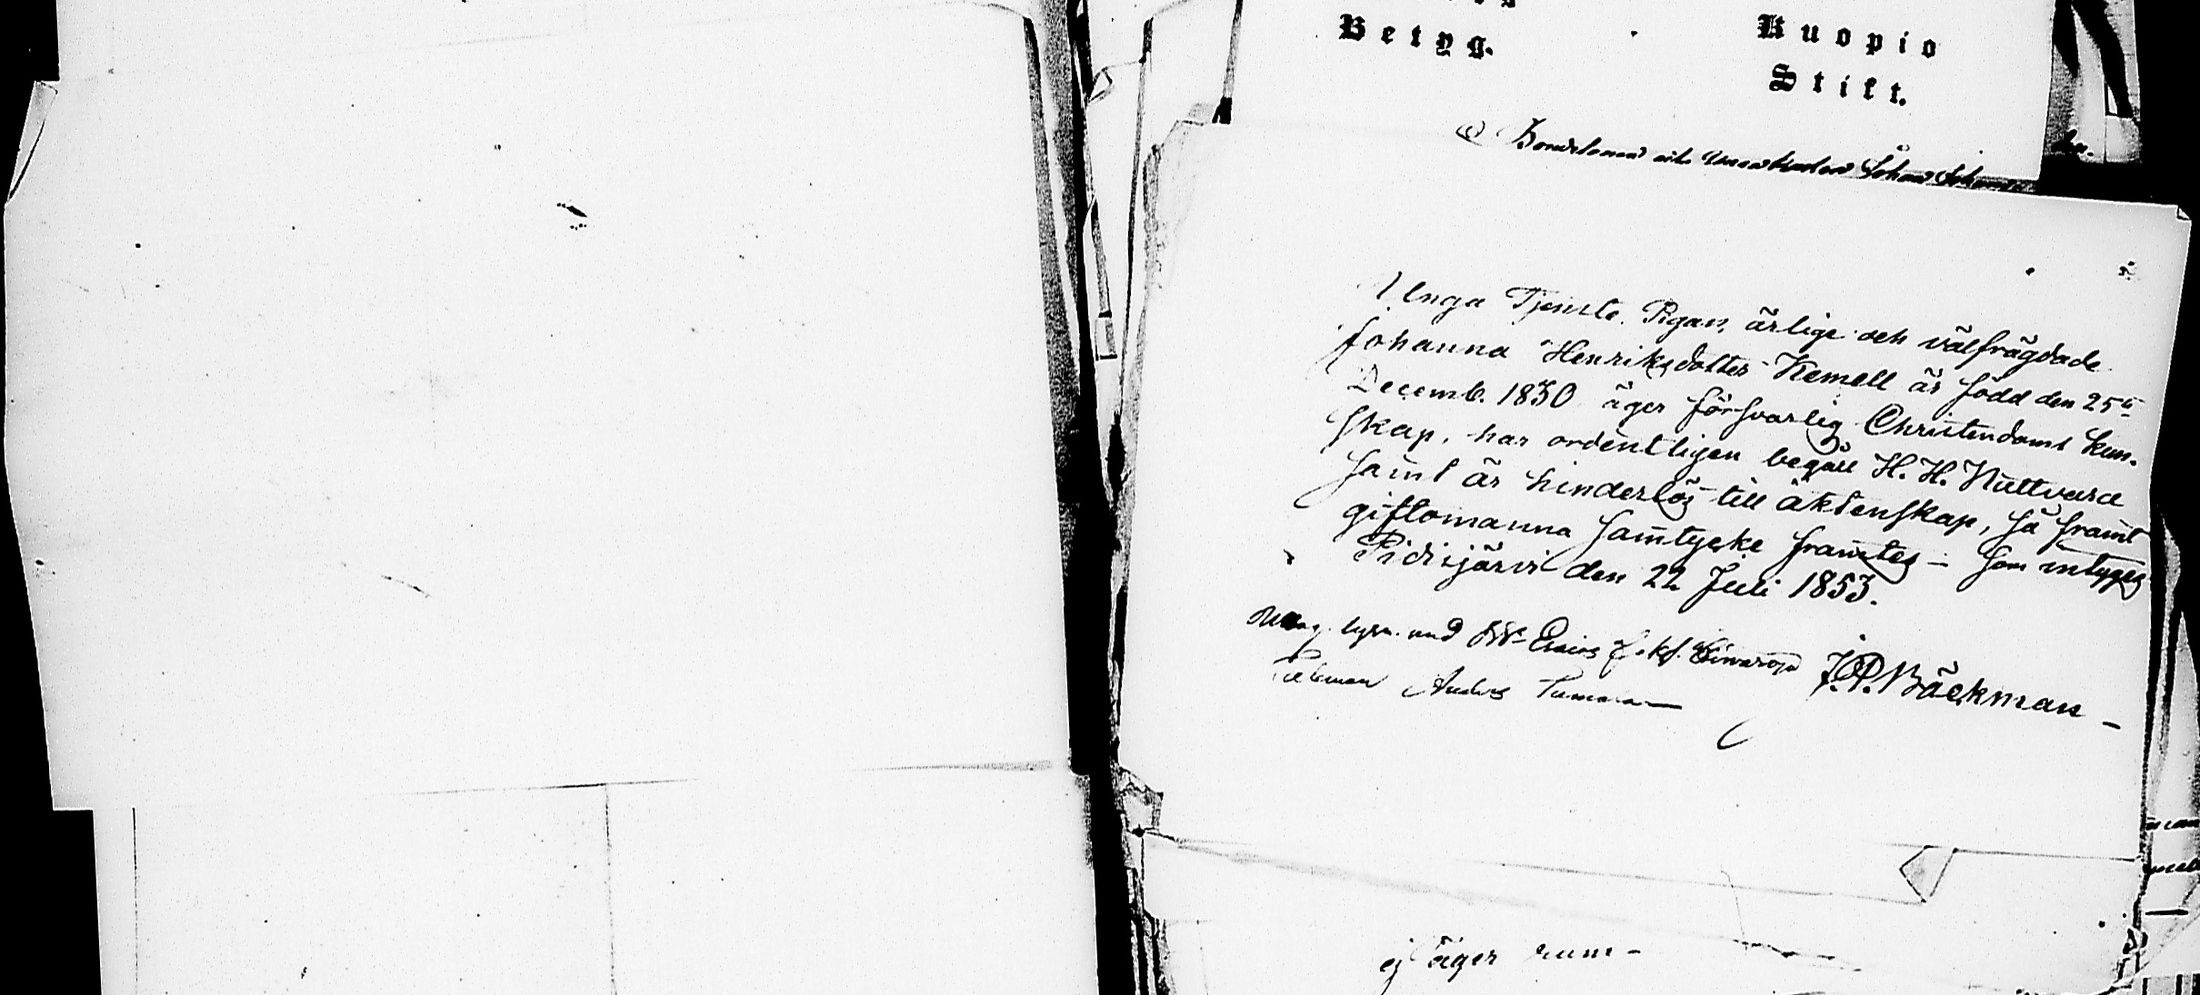 Betyg.
Kuopio
Stift.
Johan
Unga Tjenste Pigan, ärlige och välfrägdade
Johanna Henriksdotter Kemell är född den 25te
Decemb. 1830 äger försvarlig Christendoms kun-
skap, har ordentligen begått H. H. Nattvard
samt är hinderlös till äktenskap, så framt
giftomanna samtycke framtes – som intygas
Pidisjärvi den 22 Juli 1853.
J. P. Bäckman –
lysn. und
Anders
ej äger rum –